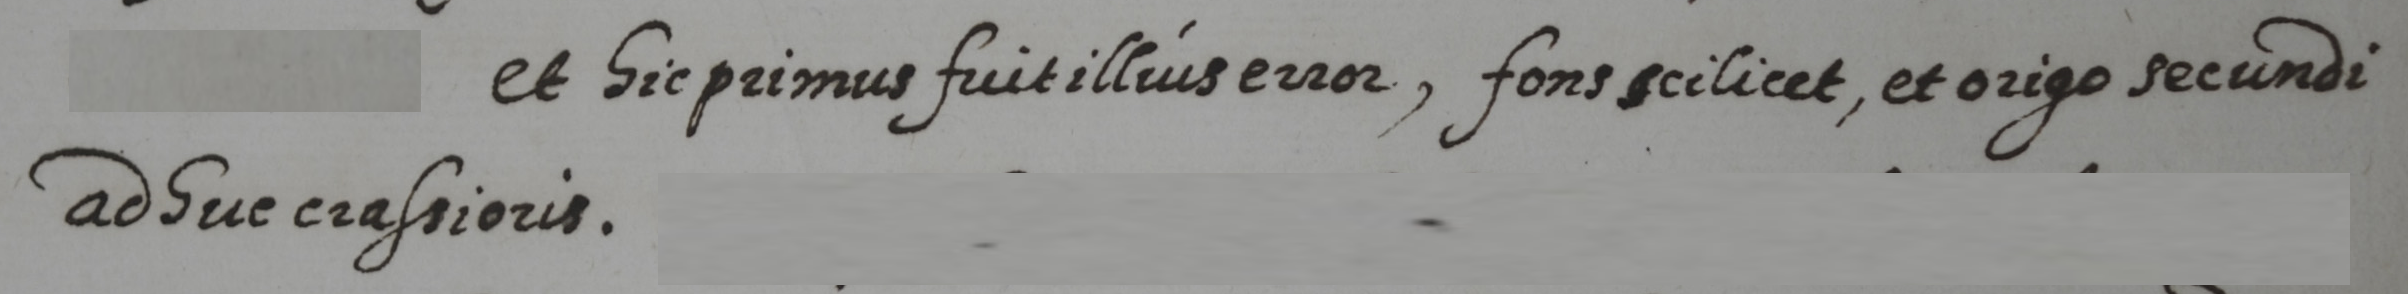 et hic primus fuit illíus error, fons scilicet, et origo secundi
adhuc crassioris.